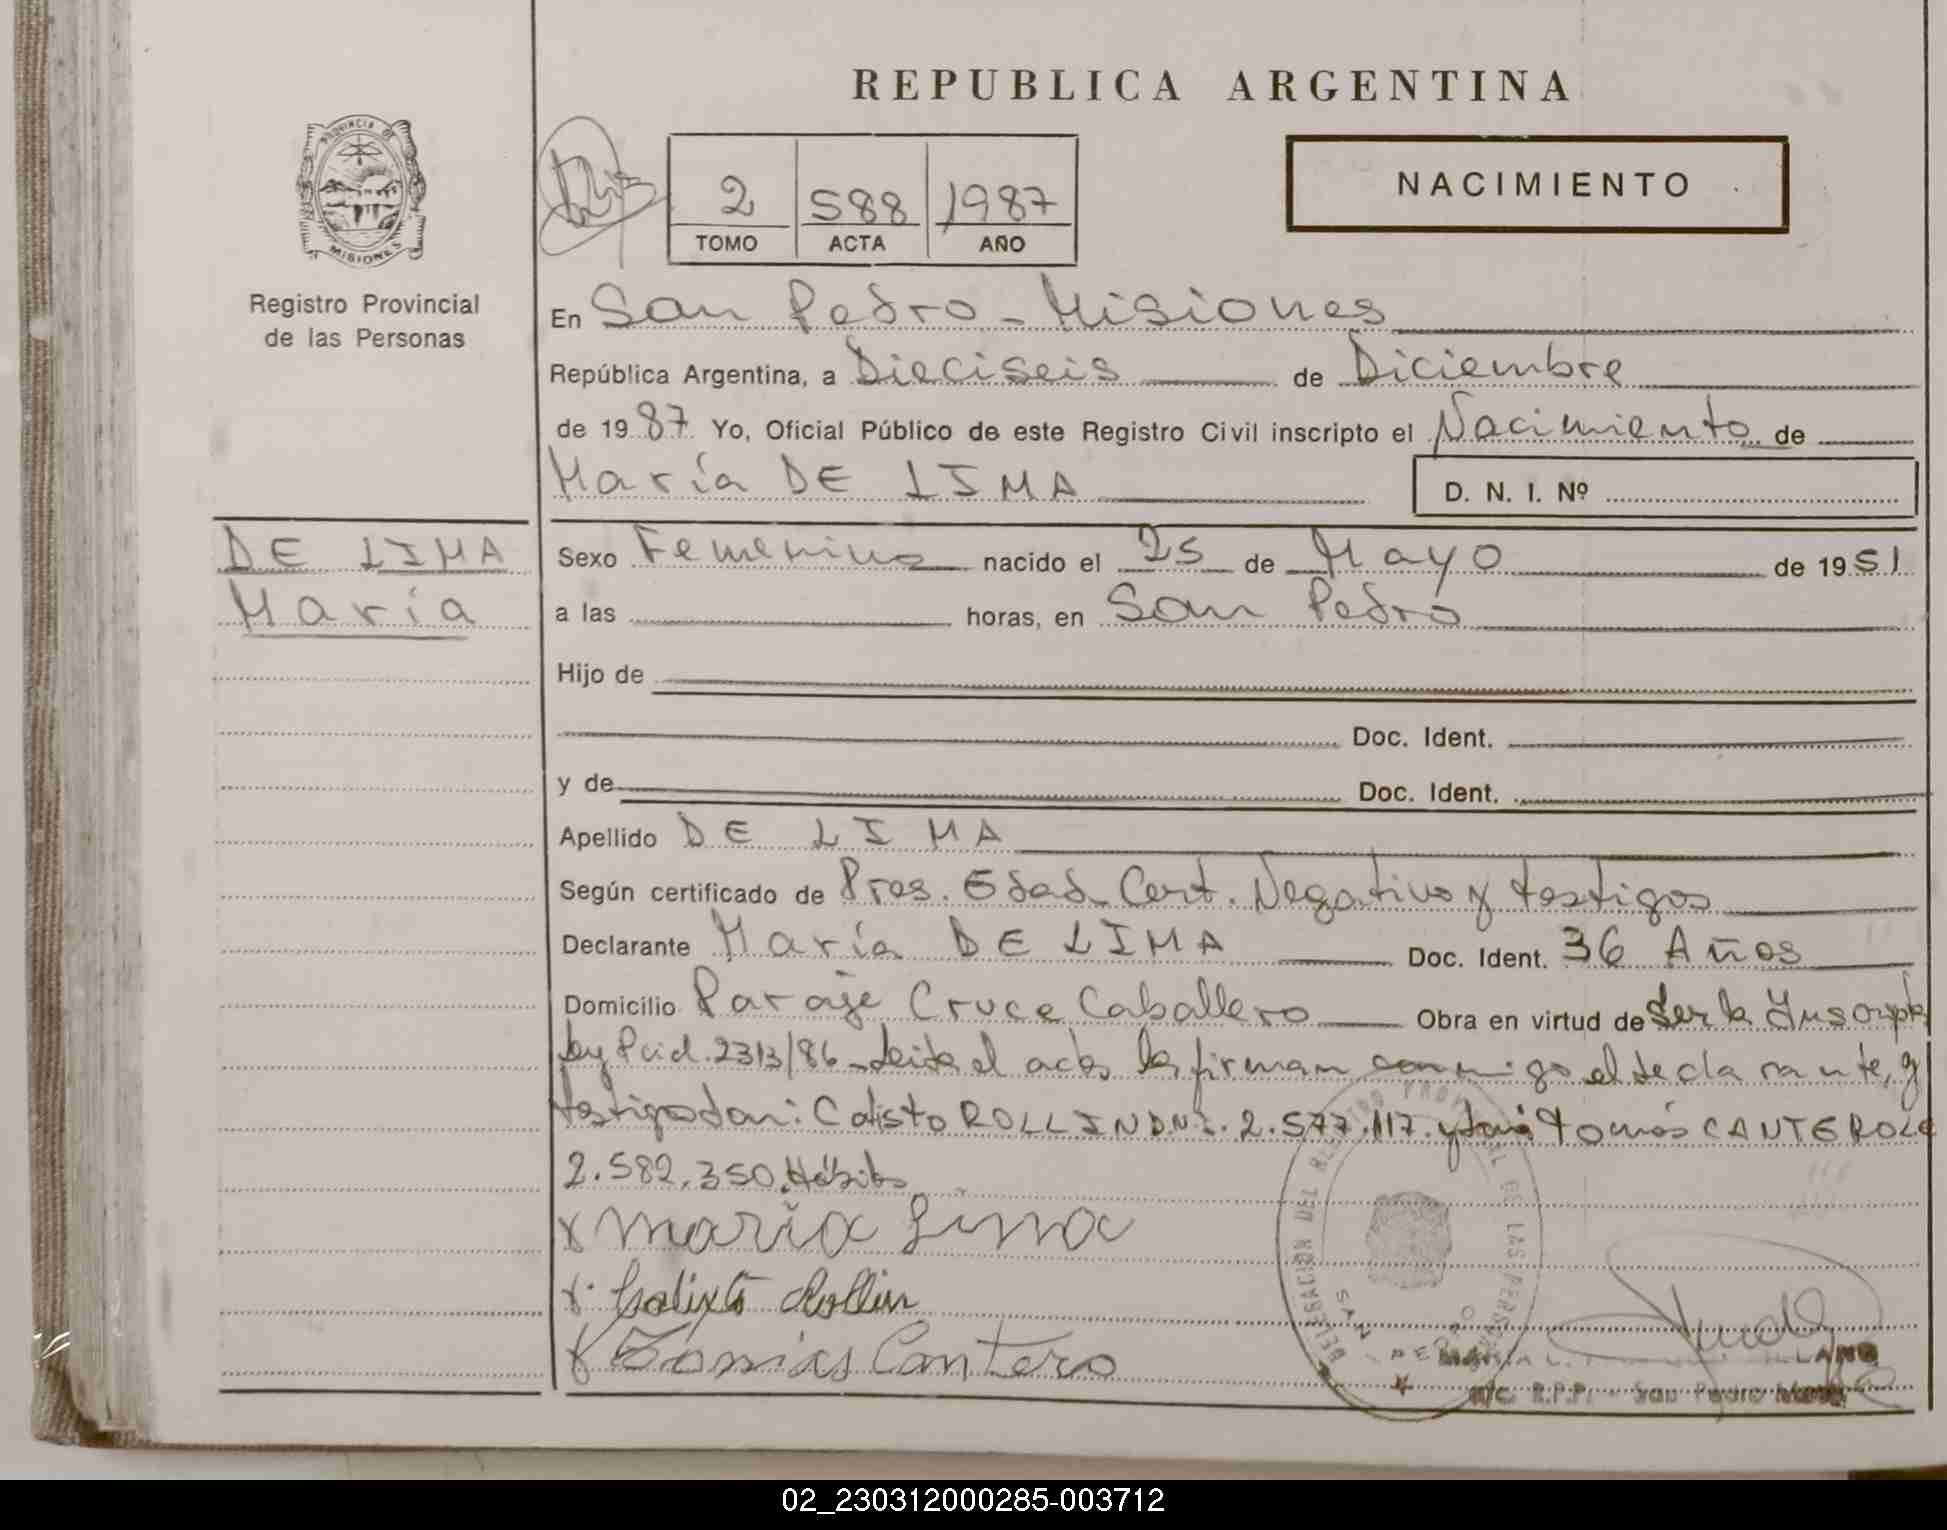 REPUBLICA ARGENTINA
PROVINCIA DE
MISIONES
Registro Provincial
de las Personas
2 588 1987
TOMO ACTA AÑO
NACIMIENTO
En San Pedro - Misiones
República Argentina, a Dieciseis de Diciembre
de 1987 Yo, Oficial Público de este Registro Civil inscripto el Nacimiento de
María DE LIMA D. N. I. Nº
DE LIMA
María
Sexo Femenino nacido el 25 de Mayo de 1951
a las horas, en San Pedro
Hijo de
Doc. Ident.
y de Doc. Ident.
Apellido DE LIMA
Según certificado de Pres. Edad Cert. Negativo y testigos
Declarante María DE LIMA Doc. Ident. 36 Años
Domicilio Paraje Cruce Caballero Obra en virtud de Ser la
Ley Pcial. 2313/86 el acta la firman conmigo el declarante, y
testigos don: Calisto ROLLIN DNI. 2.577.117. y don Tomás CANTERO LE
2.582.350. Hábiles
x maria Lima
x Calixto Rollin
x Tomas Cantero
DELEGACION DEL REGISTRO PROVINCIAL DE LAS PERSONAS
SAN PEDRO
R.P.P. San Pedro
02_230312000285-003712